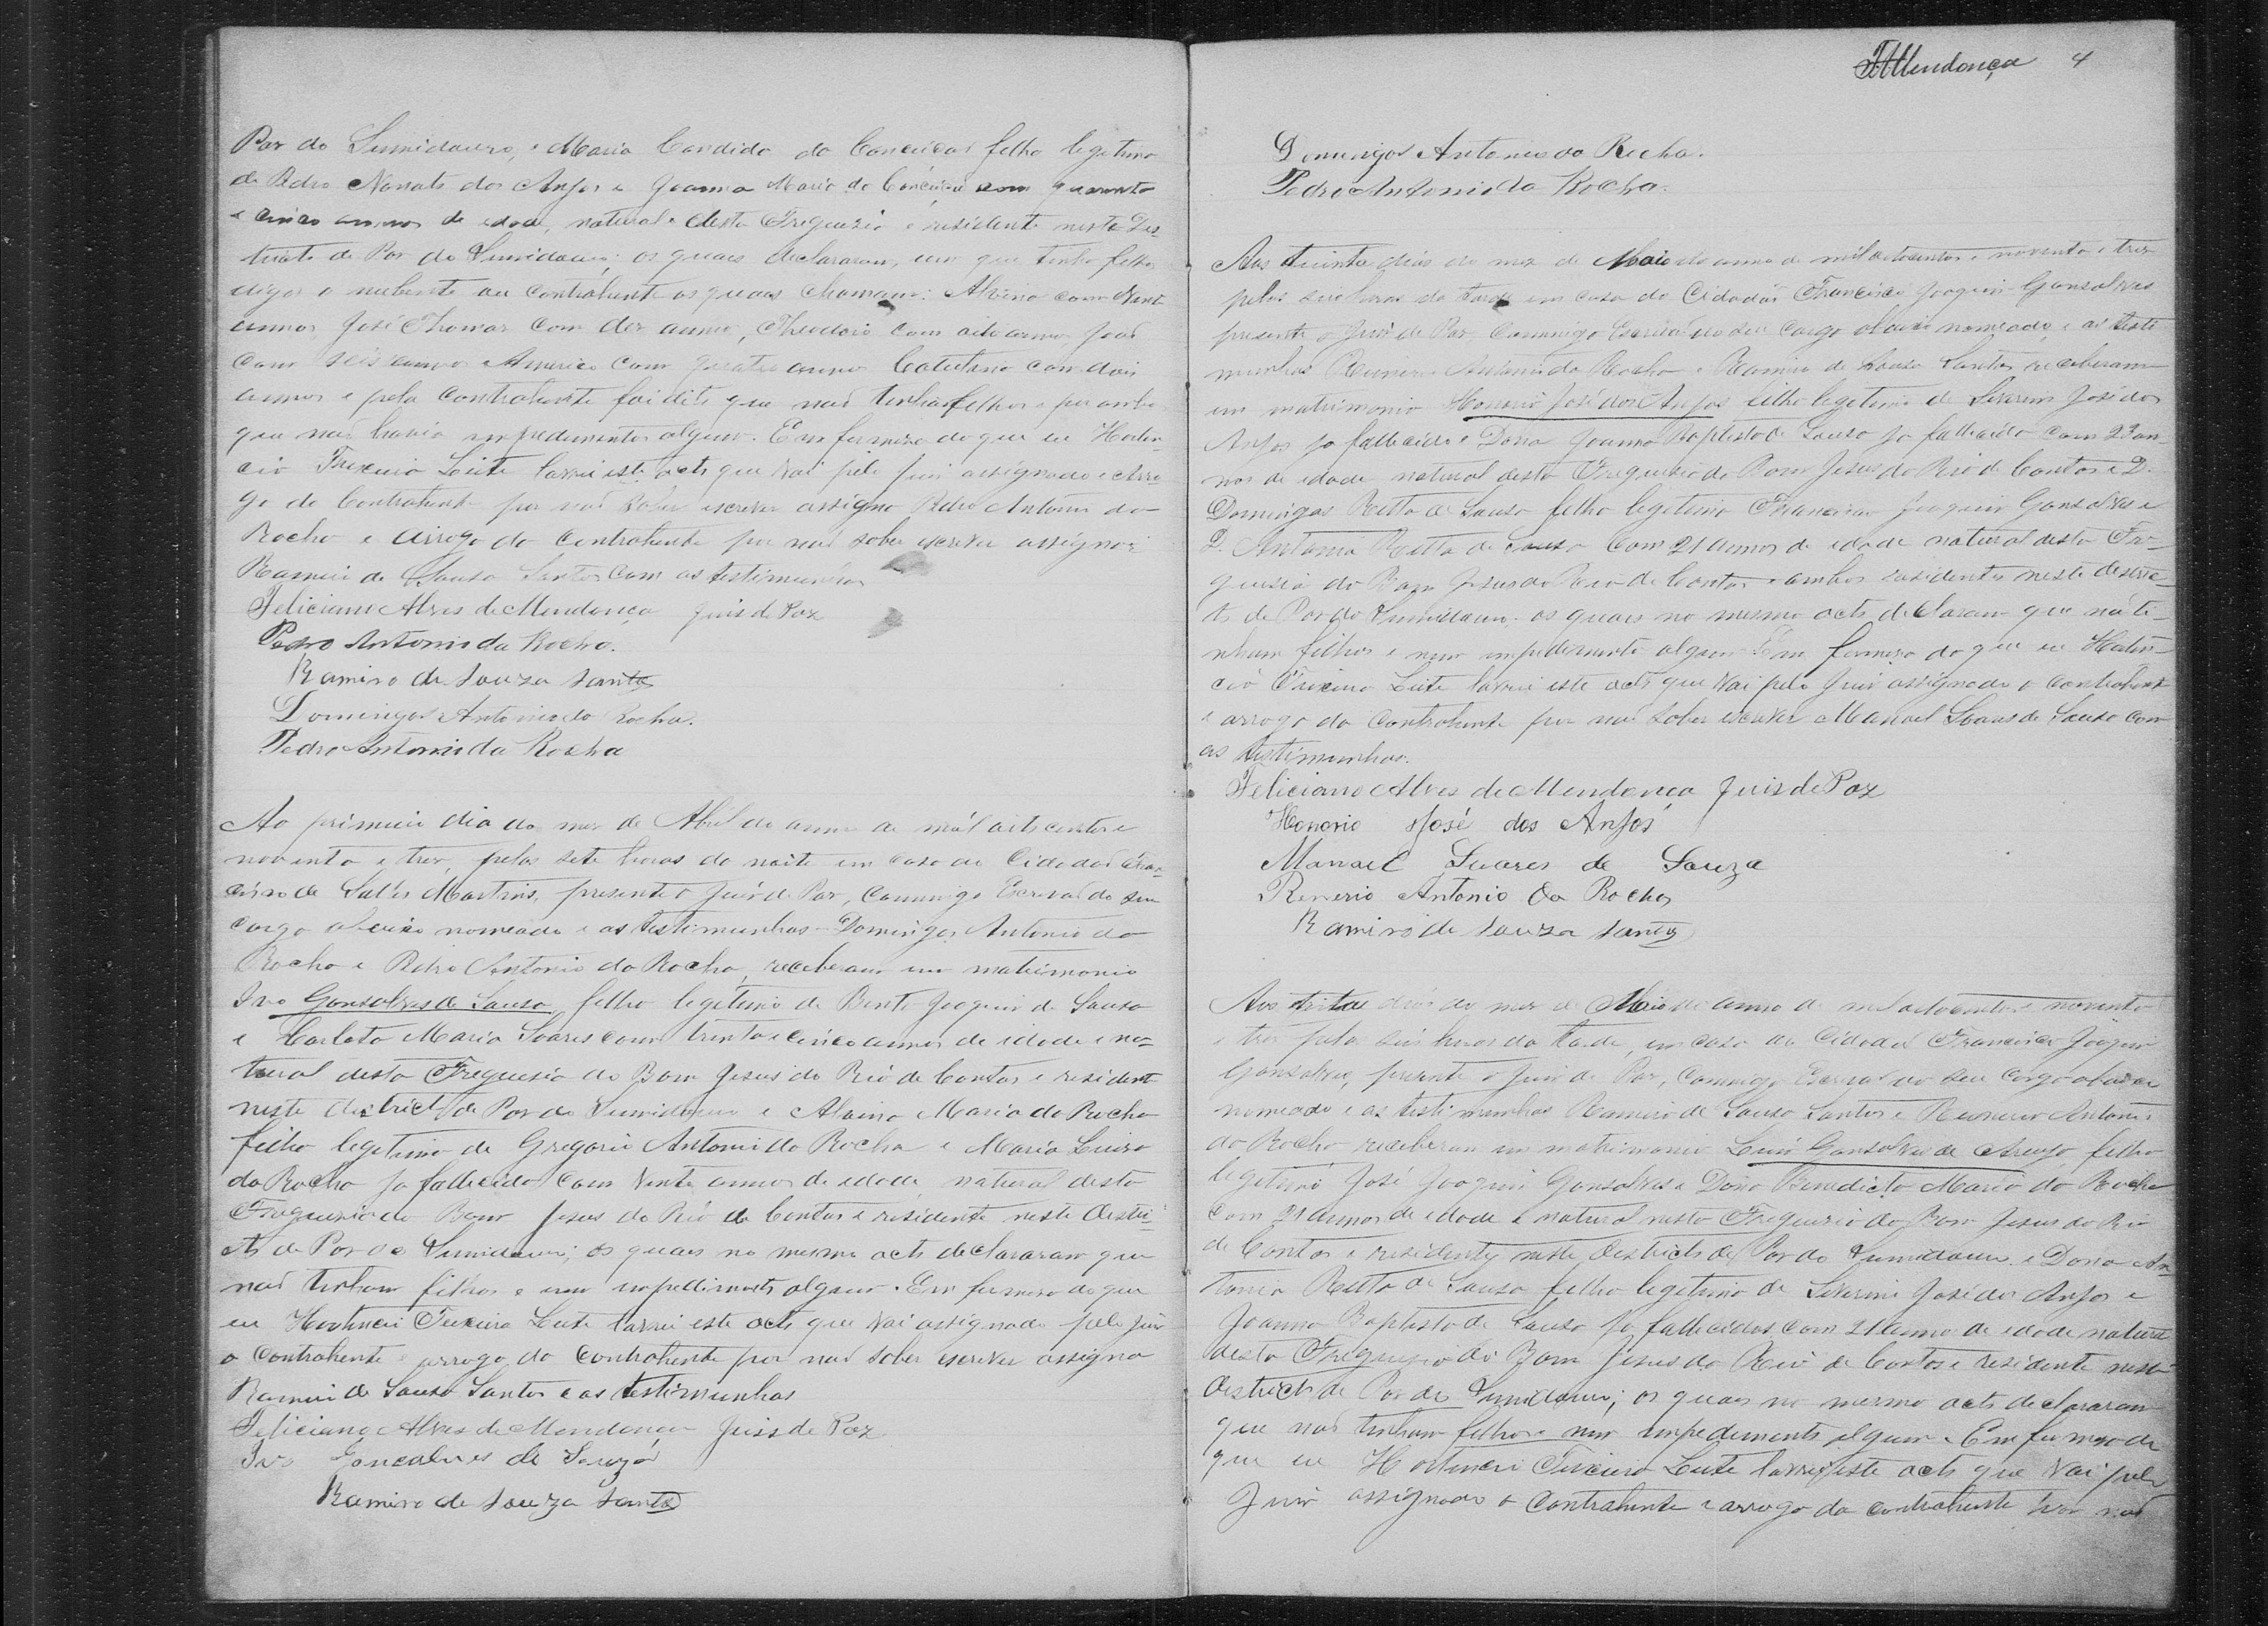 Par do Sumidouro, e Maria Candida da Conceição filha legitima
de Pedro Nonato dos Anjos e Joanna Maria da Conceição com quarenta
e cinco annos de idade, natural desta Freguezia e residente nesta Des
tricto de Par do Sumidouro; os quaes declararam, que tinha filhos
digo o nubente ou contrahente os quaes chamam: Alvino com Vinte
annos José Thomas com dez annos, Theodoro com oito annos João
com seis annos Americo com quatro annos Catulino com dois
annos e pela Contrahente foi dito que não tinha filhos e por ambos
que não havia impedimentos algum. Em firmeza do que eu Horten
cio Teixeira Leite lavrei este acto que vai pelo Juiz assignado e arro
go do Contrahente por não saber escrever assigna Pedro Antonio da
Rocha e arrogo da Contrahente por não saber escrever assigna
Ramiro de Souza Santos com as testimunhas
Feliciano Alves de Mendonça Juis de Paz
Pedro Antonio da Rocha.
Ramiro de Souza Santos
Domingos Antonio da Rocha.
Pedro Antonio da Rocha
Ao primeiro dia do mez de Abril do anno de mil oito centos e
noventa e trez, pelas sete horas da noite em casa do Cidadão Fran
cisco de Salles Martins, presente o Juiz de Paz, Commigo Escrivão do seu
cargo abaixo nomeado e as testimunhas Domingos Antonio da
Rocha e Pedro Antonio da Rocha, receberam em matrimonio
Ivo Gonsalves de Sousa, filho legitimo de Bento Joaquim de Sousa
e Carlota Maria Soares com trinta e cinco annos de idade e na=
tural desta Freguesia do Bom Jesus do Rio de Contas e residente
neste districto de Par do Sumidouro e Maria da Rocha
filha legitima de Gregorio Antonio da Rocha e Maria Luiza
da Rocha ja fallecida com Vinte annos de idade natural desta
Freguezia do Bom Jesus do Rio de Contas e residente neste destri=
cto de Par do Sumidouro; os quaes no mesmo acto declararam que
não tinham filhos e nem impedimento algum. Em firmeza do que
eu Hortencio Teixeira Leite lavrei este acto que vai assignado pelo Juiz
o Contrahente e arrogo da Contrahente por não saber escrever assigna
Ramiro de Sousa Santos e as testimunhas
Feliciano Alves de Mendonça Juis de Paz
Ivo Goncalves de Souza
Ramiro de Souza Santos
Mendonça 4
Domingos Antonio da Rocha.
Pedro Antonio da Rocha.
Aos trinta dias do mez de Maio do anno de mil oitocentos e noventa e trez
pelas seis horas da tarde em casa do Cidadão Francisco Joaquim Gonsalves
presente o Juiz de Paz, Commigo Escrivão do seu cargo abaixo nomeado, e as testi
munhas Renerio Antonio da Rocha e Ramiro de Sousa Santos receberam
em matrimonio Honorio José dos Anjos filho legitimo de Severino José dos
Anjos ja fallecido e Dona Joanna Baptista de Sousa ja fallecida com 23 an
nos de idade natural desta Freguesia do Bom Jesus do Rio de Contas e D.
Domingas Ritta de Sousa filha legitima Francisco Joaquim Gonsalves e
D. Antonia Ritta de Sousa com 21 annos de idade natural desta Fre
guesia do Bom Jesus do Rio de Contas e ambos residentes neste destric
to de Par do Sumidouro. os quaes no mesmo acto declaram que não ti
nham filhos e nem impedimento algum. Em firmeza do que eu Horten
cio Teixeira Leite lavrei este acto que vai pelo Juiz assignado o contrahente
e arrogo da Contrahente por não saber escrever Manoel Soares de Sousa com
as testimunhas.
Feliciano Alves de Mendonça Juis de Paz
Honorio José dos Anjos
Manoel Suares de Souza
Renerio Antonio da Rocha
Ramiro de Souza Santos
Aos trita dias do mez de Maio do anno de mil oitocentos e noventa
e tres pelas seis horas da tarde, em casa do Cidadão Francisco Joaquim
Gonsalves, presente o Juiz de Paz, Commigo Escrivão do seu cargo abaixo
nomeado e as testimunhas Ramiro de Sousa Santos e Renerio Antonio
da Rocha receberam em matrimonio Luis Gonsalves de Araujo filho
legitimo José Joaquim Gonsalves e Dona Benedicta Maria da Rocha
com 21 annos de idade e natural nesta Freguezia do Bom Jesus do Rio
de Contas e residente neste Destricto de Par do Sumidouro e Dona An
tonia Ritta de Sousa filha legitima de Severino José dos Anjos e
Joanna Baptista de Sousa ja fallecidos com 21 anno de idade natural
desta Freguesia do Bom Jesus do Rio de Contas e residente neste
Destricto de Par do Sumidouro; os quaes no mesmo acto declararam
que não tinham filhos e nem impedimento algum. Em firmeza do
que eu Hortencio Teixeira Leite lavrei este acto que vai pelo
Juiz assignado o Contrahente e arrogo da contrahente por não